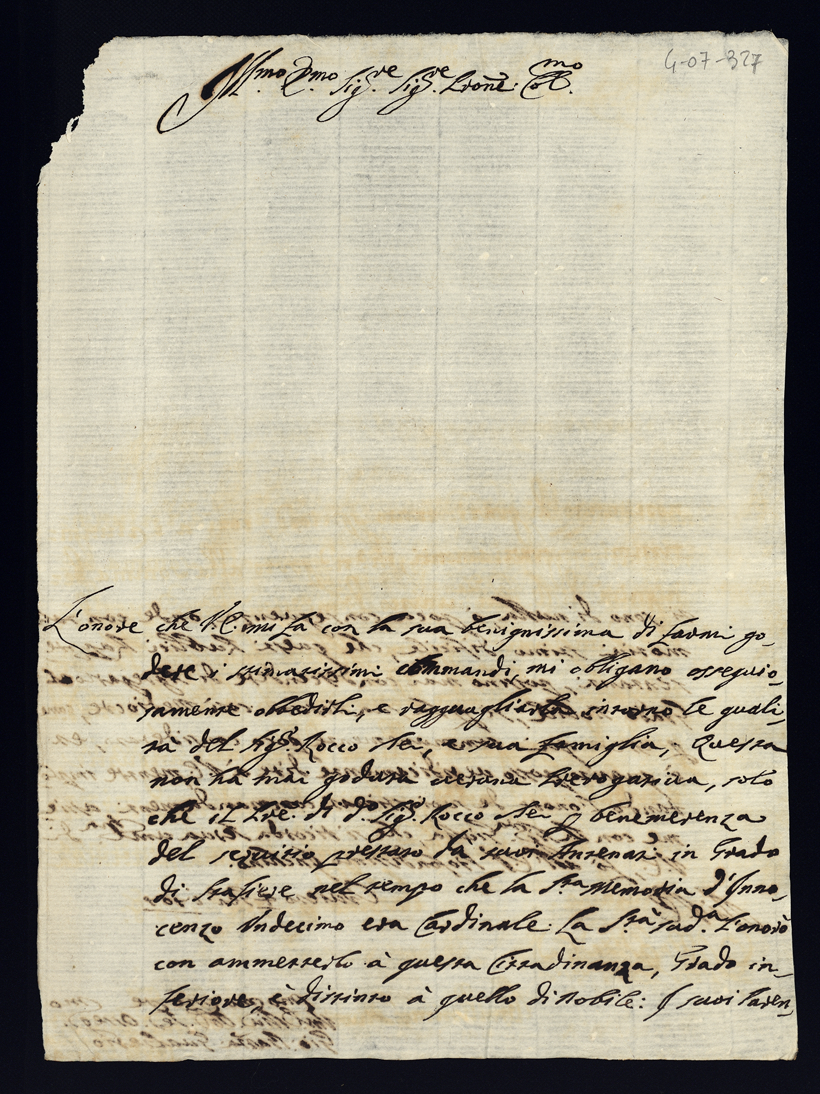 4-07-327
Ill.mo Sig.re Sig.re Prone Col.mo
L'onore che V.S. mi fà con la sua benignissima di farmi go-
dere i stimatissimi commandi, mi obligano ossequio-
samente obbedirli, e ragguagliarla intorno le quali-
tà del Sig.r Rocco Stei, e sua famiglia, Questa
non hà mai goduta veruna prerogativa, solo
che il Pre. di d.o Sig.r Rocco Stei p benemerenza
del servizio prestato da suoi Antenati in Grado
di Stafiere nel tempo che la S.ta Memoria d'Inno-
cenzo Undecimo era Cardinale. La S.tà sud.a l'onorò
con ammetterlo à questa Cittadinanza, Grado in-
feriore, è distinto à quello di Nobile: I suoi Paren-